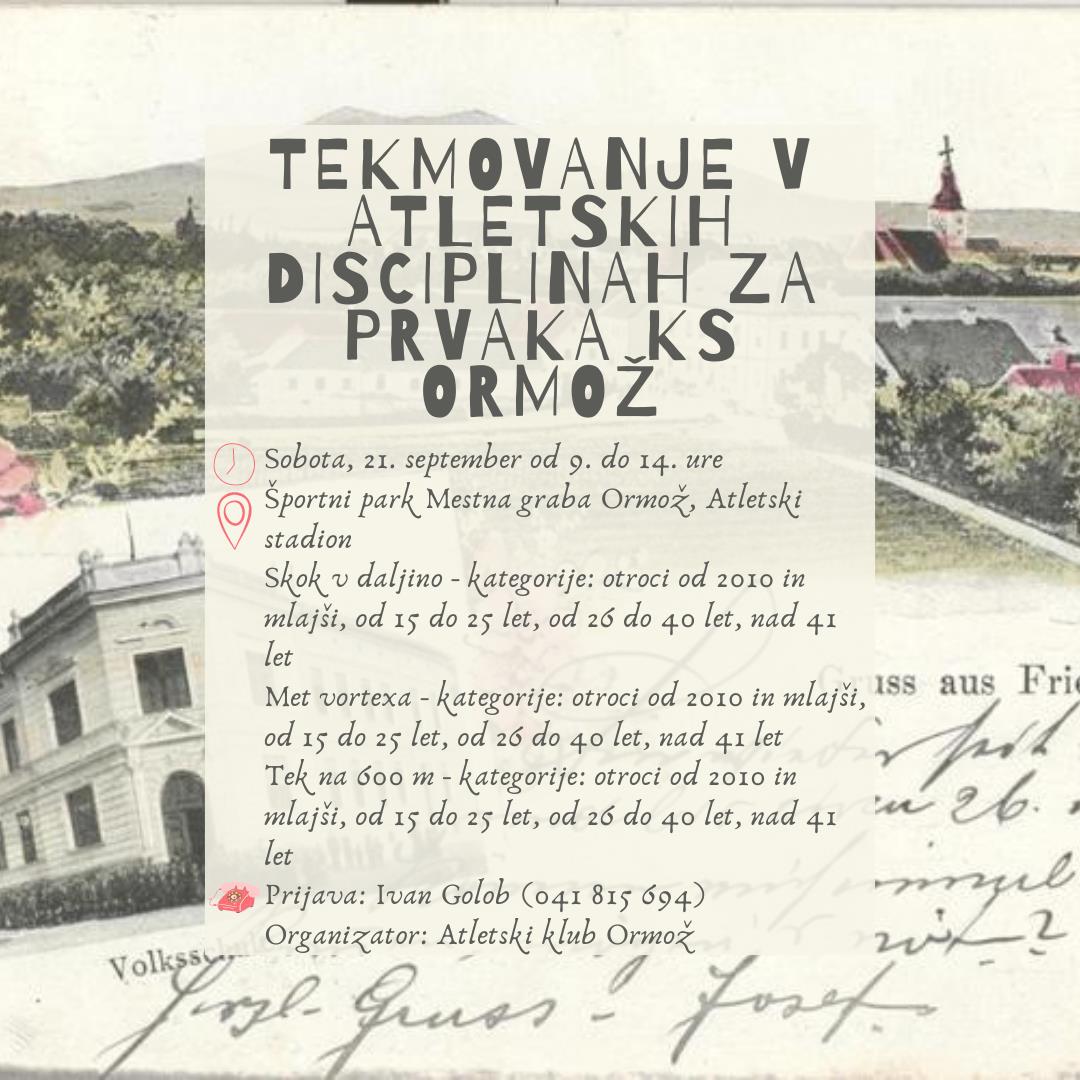 TEKMOVANJE V
ATLETSKIH
DISCIPLINAH ZA
PRVAKA KS
ORMOŽ
Sobota, 21. september od 9. do 14. ure
Športni park Mestna graba Ormož, Atletski
stadion
Skok v daljino - kategorije: otroci od 2010 in
mlajši, od 15 do 25 let, od 26 do 40 let, nad 41
let
Met vortexa - kategorije: otroci od 2010 in mlajši,
od 15 do 25 let, od 26 do 40 let, nad 41 let
Tek na 600 m - kategorije: otroci od 2010 in
mlajši, od 15 do 25 let, od 26 do 40 let, nad 41
let
Prijava: Ivan Golob (041 815 694)
Organizator: Atletski klub Ormož
Gruss aus
26.
Gruss - Josef.